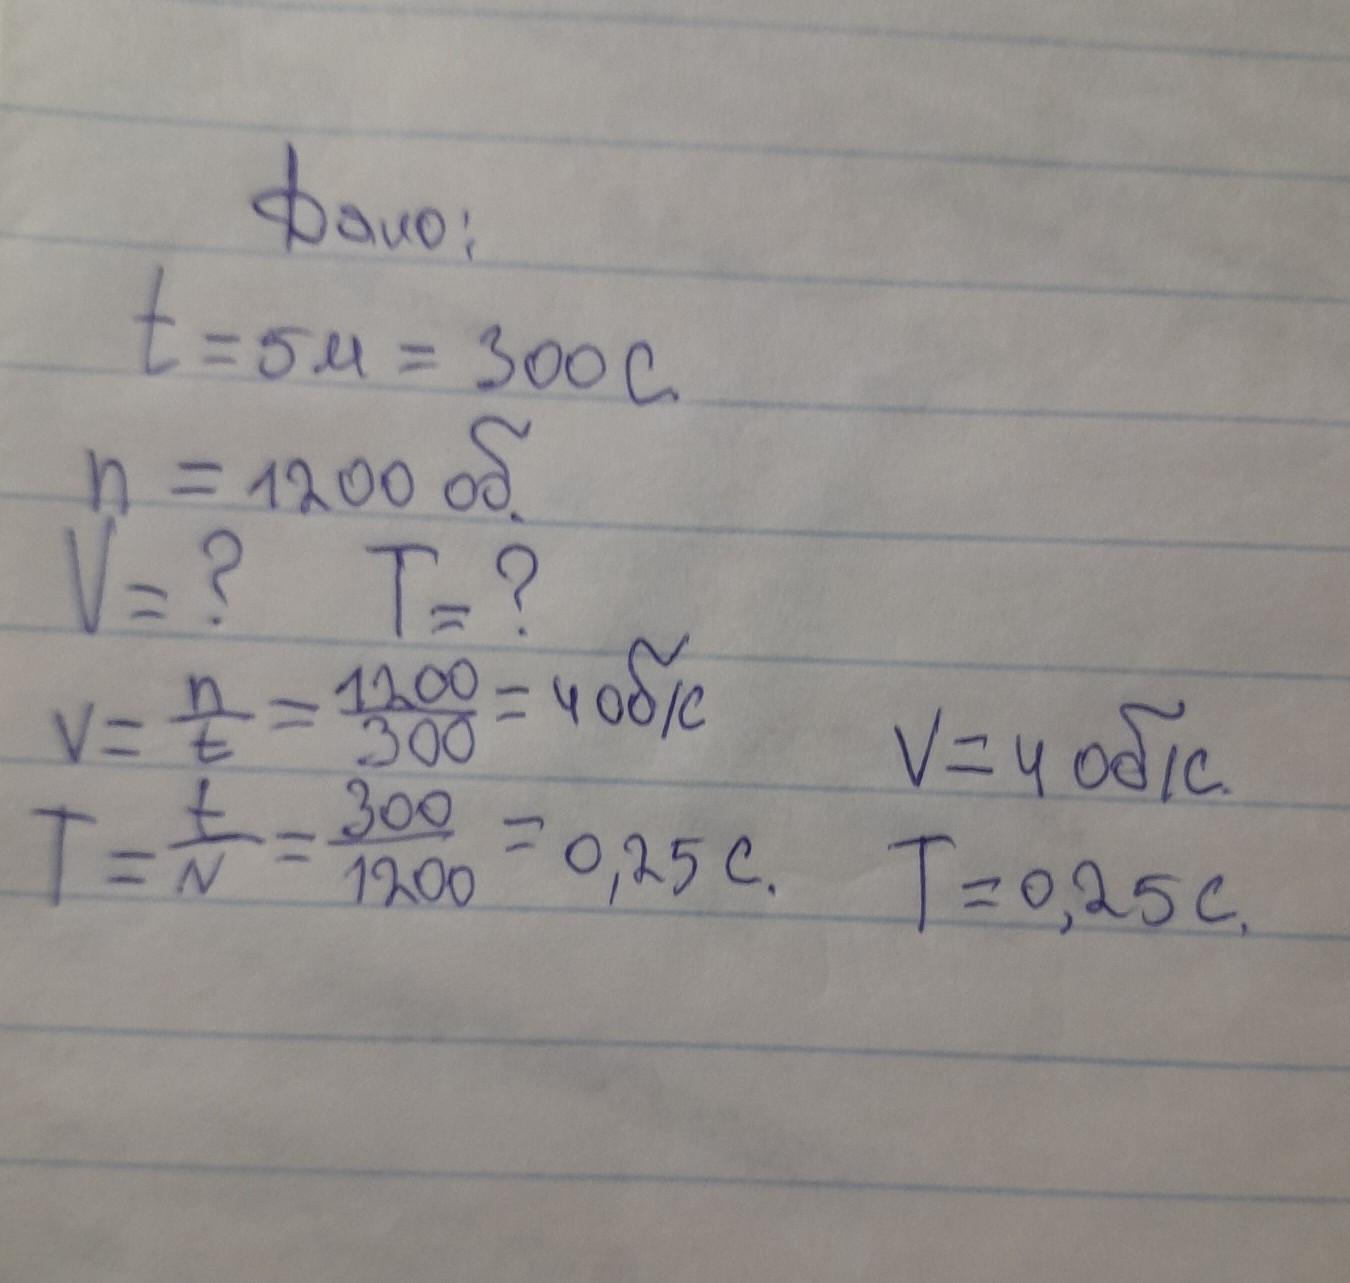 Дано:
t = 5м = 300 с.
n = 1200 об.
V = ? T = ?
v = n/t = 1200/300 = 4 об/с
T = t/N = 300/1200 = 0,25 с.
V = 4 об/с.
T = 0,25 с.